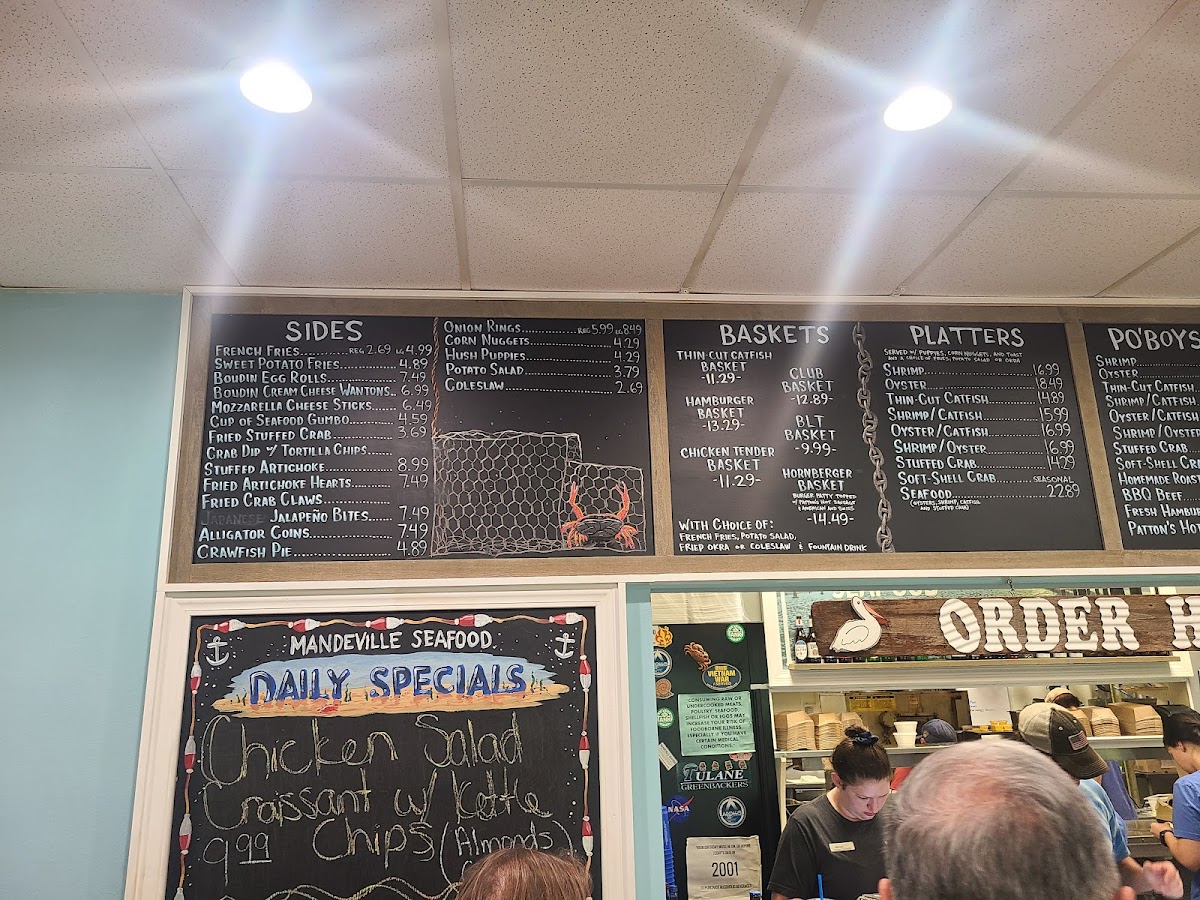 SIDES
FRENCH FRIES..........REG 2.69 LG 4.99
SWEET POTATO FRIES........4.89
BOUDIN EGG ROLLS........7.49
BOUDIN CREAM CHEESE WANTONS..6.99
MOZZARELLA CHEESE STICKS......6.49
CUP OF SEAFOOD GUMBO......4.59
FRIED STUFFED CRAB........3.69
CRAB DIP W/ TORTILLA CHIPS......
STUFFED ARTICHOKE........8.99
FRIED ARTICHOKE HEARTS......7.49
FRIED CRAB CLAWS........
JAPANESE JALAPEÑO BITES......7.49
ALLIGATOR COINS........7.49
CRAWFISH PIE........4.89
ONION RINGS........REG 5.99 LG 8.49
CORN NUGGETS........4.29
HUSH PUPPIES........4.29
POTATO SALAD........3.79
COLESLAW........2.69
BASKETS
THIN-CUT CATFISH
BASKET
-11.29-
HAMBURGER
BASKET
-13.29-
CHICKEN TENDER
BASKET
-11.29-
CLUB
BASKET
-12.89-
BLT
BASKET
-9.99-
HORNBERGER
BASKET
BURGER PATTY TOPPED
W/ PATTON'S HOT SAUSAGE
& AMERICAN AND SWISS
-14.49-
WITH CHOICE OF:
FRENCH FRIES, POTATO SALAD,
FRIED OKRA OR COLESLAW & FOUNTAIN DRINK
PLATTERS
SERVED W/ PUPPIES, CORN NUGGETS, AND TOAST
AND A CHOICE OF FRIES, POTATO SALAD OR OKRA
SHRIMP........16.99
OYSTER........18.49
THIN-CUT CATFISH........14.89
SHRIMP/CATFISH........15.99
OYSTER/CATFISH........16.99
SHRIMP/OYSTER........16.99
STUFFED CRAB........14.29
SOFT-SHELL CRAB........SEASONAL
SEAFOOD........22.89
(OYSTERS, SHRIMP, CATFISH
AND STUFFED CRAB)
PO'BOYS
SHRIMP
OYSTER
THIN-CUT CATFISH
SHRIMP/CATFISH
OYSTER/CATFISH
SHRIMP/OYSTER
STUFFED CRAB
SOFT-SHELL CR
HOMEMADE ROAST
BBQ BEEF
FRESH HAMBUR
PATTON'S HO
MANDEVILLE SEAFOOD
DAILY SPECIALS
Chicken Salad
Croissant w/ Kettle
9.99 Chips (Almonds)
SEAFOOD
ORDER H
VIETNAM
WAR
CONSUMING RAW OR
UNDERCOOKED MEATS,
POULTRY, SEAFOOD,
SHELLFISH OR EGGS MAY
INCREASE YOUR RISK OF
FOODBORNE ILLNESS,
ESPECIALLY IF YOU HAVE
CERTAIN MEDICAL
CONDITIONS.
TULANE
GREENBACKERS
NASA
2001